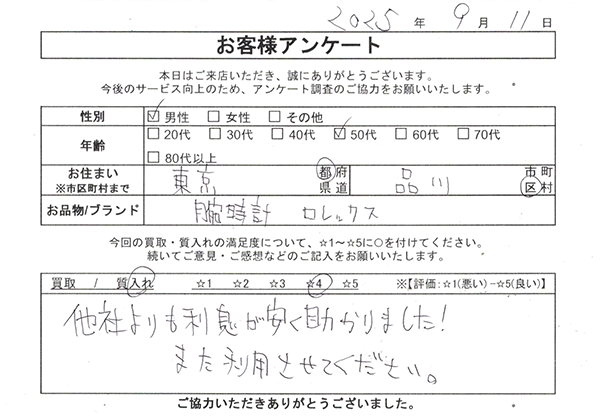 2025 年 9 月 11 日
お客様アンケート
本日はご来店いただき、誠にありがとうございます。
今後のサービス向上のため、アンケート調査のご協力をお願いいたします。
性別 ☑男性 □女性 □その他
年齢 □20代 □30代 □40代 ☑50代 □60代 □70代
□80代以上
お住まい 東京 都府 品川 市町
※市区町村まで 県道 区村
お品物/ブランド 腕時計 ロレックス
今回の買取・質入れの満足度について、☆1～☆5に○を付けてください。
続いてご意見・ご感想などのご記入をお願いいたします。
買取 / 質入れ ☆1 ☆2 ☆3 ☆4 ☆5 ※【評価:☆1(悪い)-☆5(良い)】
他社よりも利息が安く助かりました!
また利用させてください。
ご協力いただきありがとうございました。